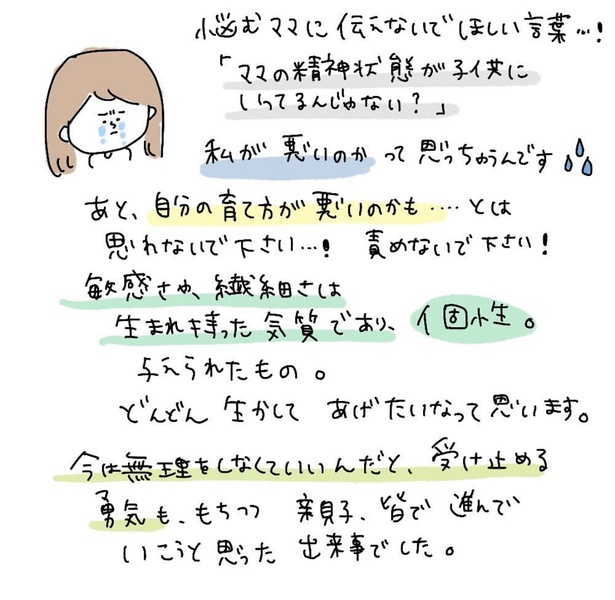 悩むママに伝えないでほしい言葉…!
「ママの精神状態が子供に
いってるんじゃない?」
私が悪いのかって思っちゃうんです
あと、自分の育て方が悪いのかも‥‥とは
思わないで下さい…! 責めないで下さい!
敏感さや、繊細さは
生まれ持った気質であり、個性。
与えられたもの。
どんどん生かしてあげたいなって思います。
今は無理をしなくていいんだと、受け止める
勇気も、もちつつ 親子、皆で進んで
いこうと思った出来事でした。